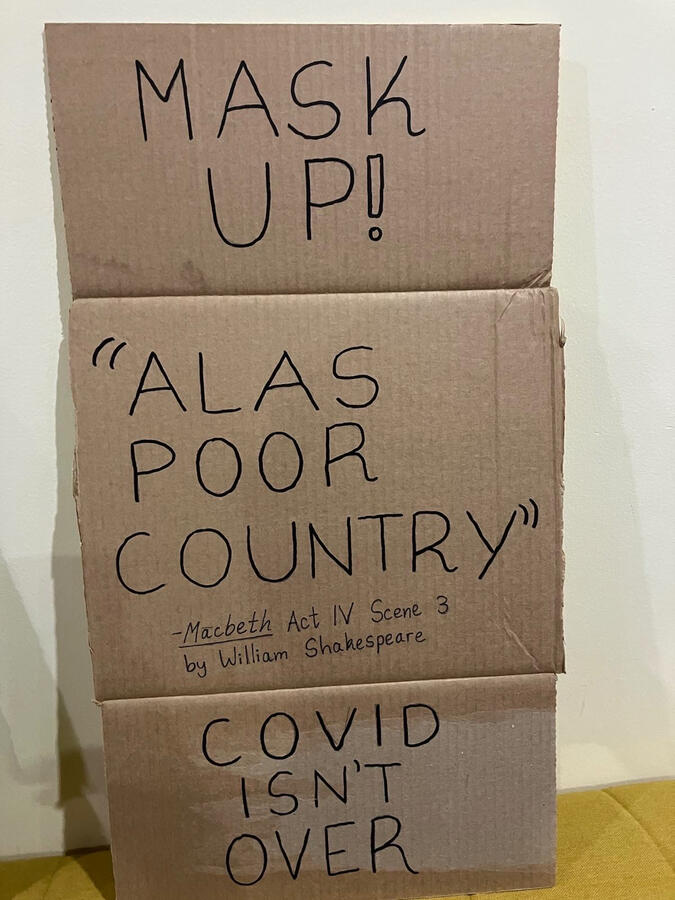 MASK
UP!
"ALAS
POOR
COUNTRY"
-Macbeth Act IV Scene 3
by William Shakespeare
COVID
ISN'T
OVER